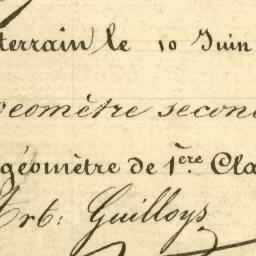 terrain le 10 Juin
géomètre second
géomètre de 1ère Cla
Art: Guilloys